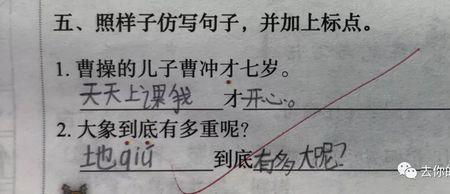 五、照样子仿写句子，并加上标点。
1. 曹操的儿子曹冲才七岁。
天天上课我才开心。
2. 大象到底有多重呢？
地qiú到底有多大呢？
去你的